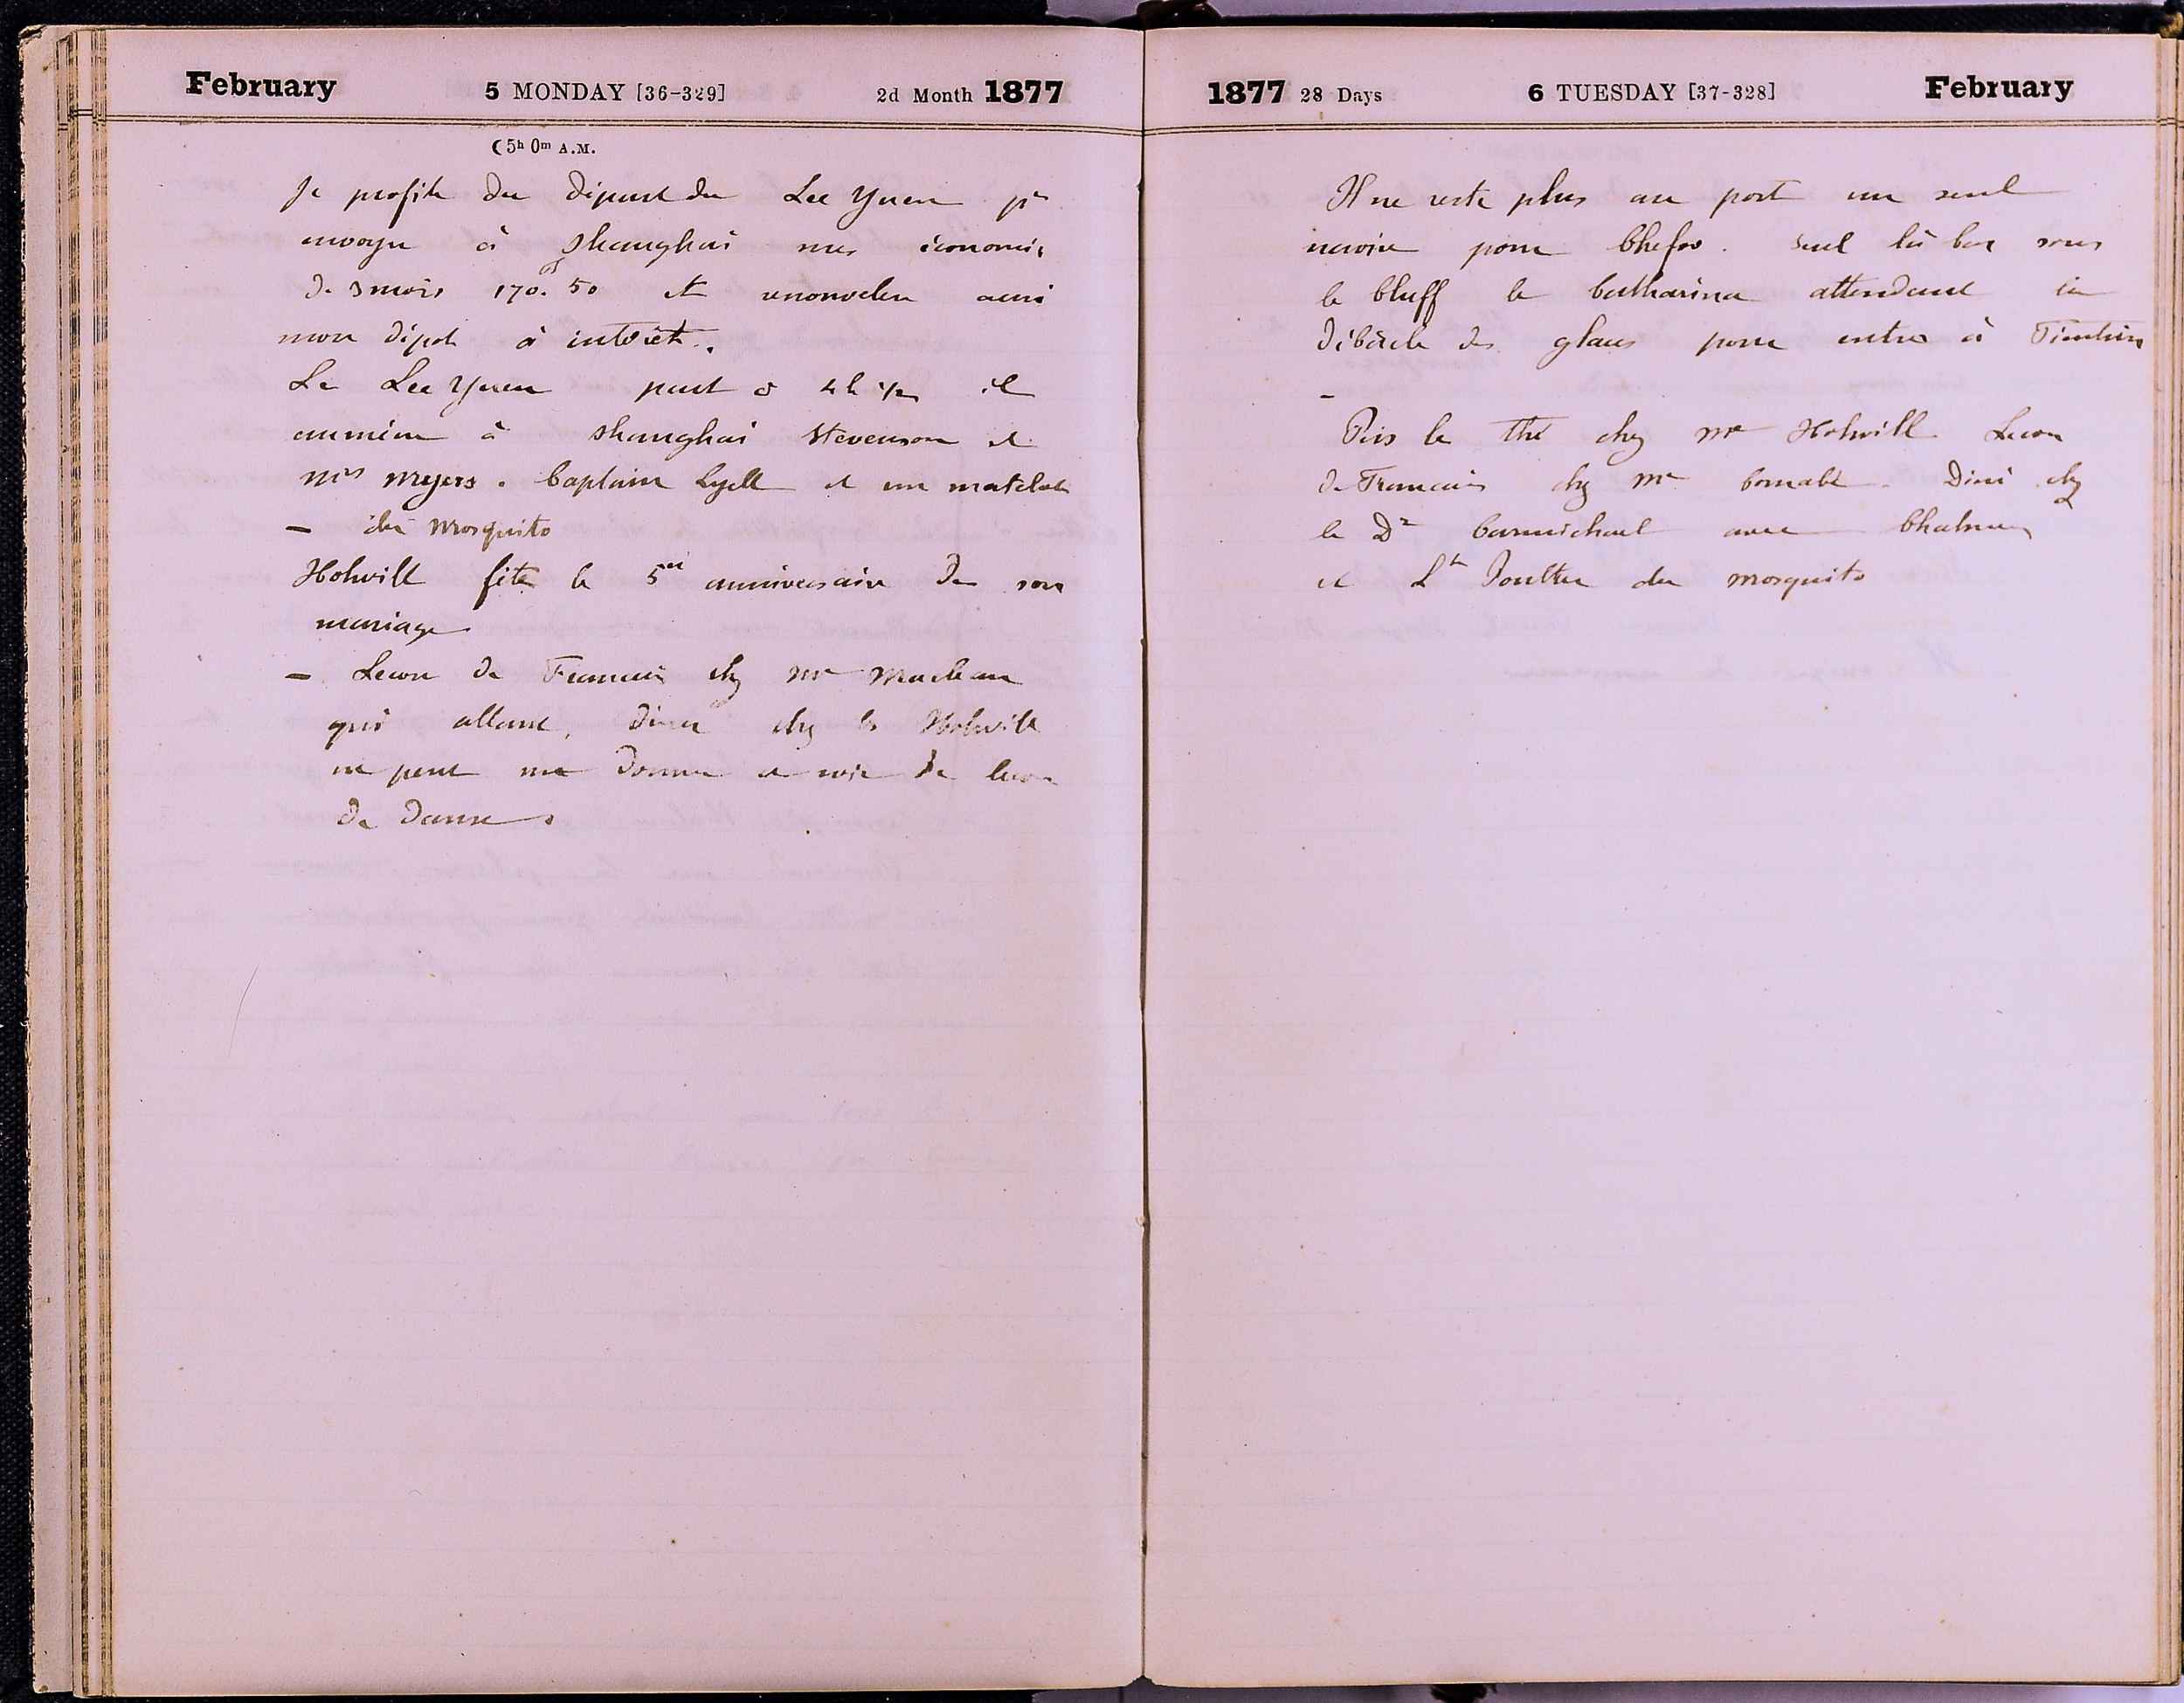 February 5 MONDAY [36-329] 2d Month 1877
☾ 5h 0m A.M.
Je profite du départ du Lee Yuen pr
envoyer à Shanghai mes économies
de 3 mois 170.50 et renouveler aussi
mon dépot à intérêt.
Le Lee Yuen part à 4h 1/2 il
emmène à Shanghai Stevenson et
Mrs Myers. Captain Lyell et un matelot
– du Mosquito
Holwill fête le 5e anniversaire de son
mariage
– Lecon de Francais chez Mr Maclean
qui allant diner chez les Holwill
ne peut me donner ce soir de lecon
de danse
1877 28 Days 6 TUESDAY [37-328] February
Il ne reste plus au port un seul
navire pour Chefoo. Seul là bas sous
le bluff le Catharina attendant la
débâcle des glaces pour entrer à Tientsin
–
Pris le thé chez Mr Holwill Lecon
de Francais chez Mr Cornabé. Diné chez
le Dr Carmichael avec Chalmers
et Lt Poulter du Mosquito